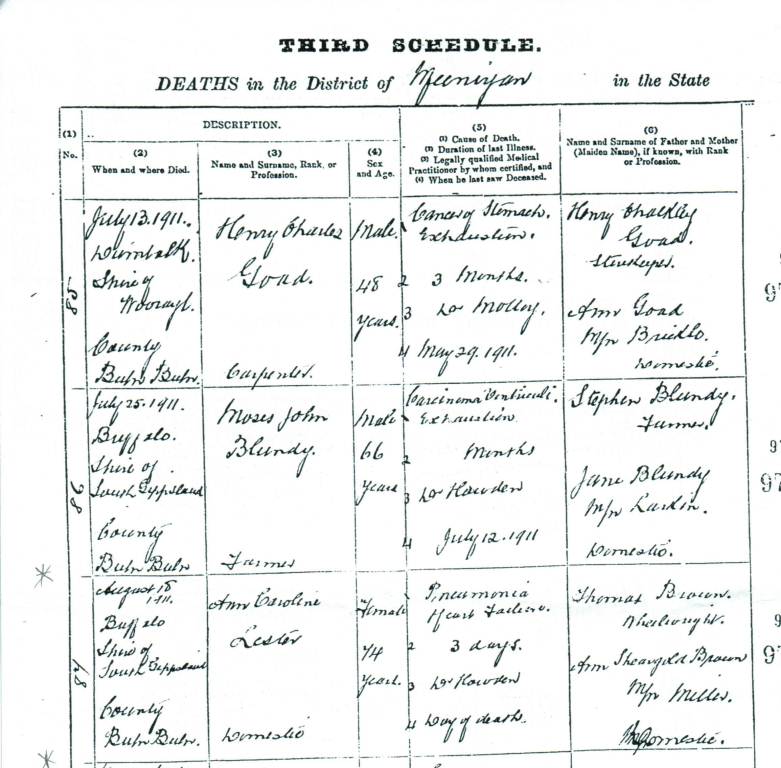 THIRD SCHEDULE.
DEATHS in the District of Meeniyan in the State
DESCRIPTION.
(1)
No.
(2)
When and where Died.
(3)
Name and Surname, Rank, or
Profession.
(4)
Sex
and Age.
(5)
(1) Cause of Death.
(2) Duration of last Illness.
(3) Legally qualified Medical
Practitioner by whom certified, and
(4) When he last saw Deceased.
(6)
Name and Surname of Father and Mother
(Maiden Name), if known, with Rank
or Profession.
85
July 13. 1911.
Dumbalk.
Shire of
Woorayl.
County
Buln Buln.
Henry Charles
Goad.
Carpenter.
Male.
48
years.
1 Cancer of Stomach.
Exhaustion.
2 3 Months.
3 Dr Molloy.
4 May 29. 1911.
Henry Chalkley
Goad.
Storekeeper.
Ann Goad
M/n
Domestic.
97
86
July 25. 1911.
Buffalo.
Shire of
South Gippsland
County
Buln Buln
Moses John
Blundy.
Farmer
Male
66
years
1 Carcinoma Ventriculi.
Exhaustion
2 Months
3 Dr Howden
4 July 12. 1911
Stephen Blundy.
Farmer.
Jane Blundy
M/n Larkin.
Domestic.
97
87
August 18
1911.
Buffalo
Shire of
South Gippsland
County
Buln Buln.
Ann Caroline
Lester
Domestic
Female
74
years.
1 Pneumonia
Heart Failure.
2 3 days.
3 Dr Howden
4 Day of death.
Thomas Brown.
Wheelwright.
Ann Brown
M/n Miller.
Domestic.
97